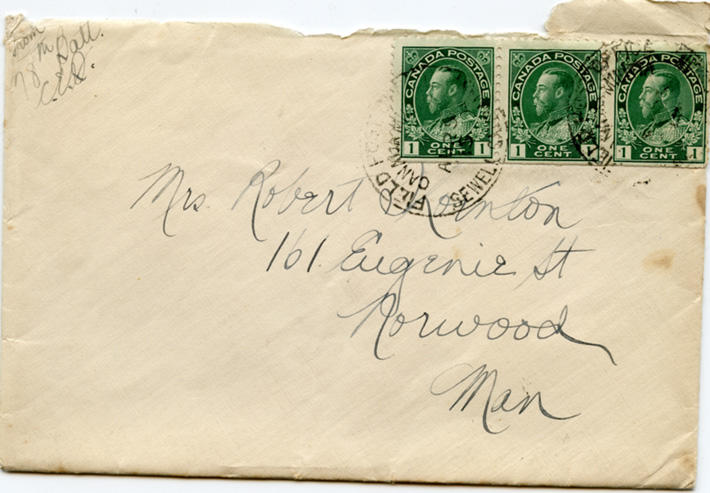 From
78th Batt.
C.E.F.
CANADA POSTAGE
1 ONE CENT 1
CANADA POSTAGE
1 ONE CENT
CANADA POSTAGE
1 ONE CENT 1
FIELD
CANADA
SEWELL
Mrs. Robert
161 Eugenie St
Norwood
Man